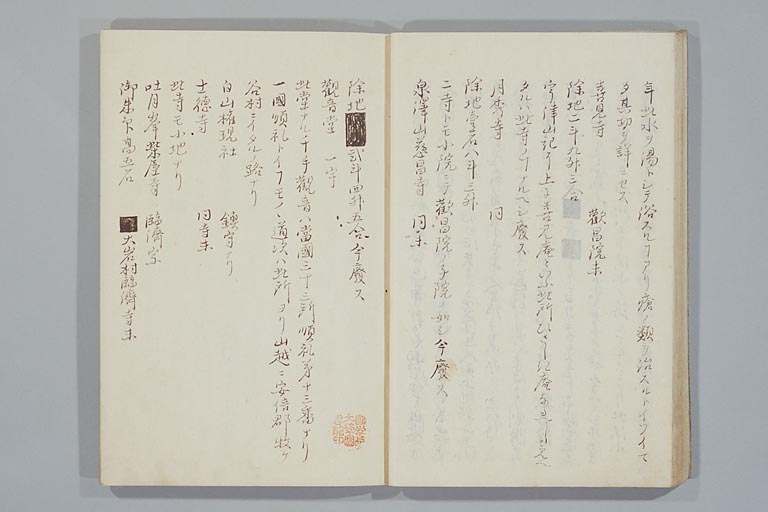 年此水ヲ湯トシテ浴スルアリ瘡ノ類ヲ治スルトイヘイマ
タ其功ヲ詳ニセス
喜見寺 歡昌院末
除地二斗九升三合
宇津山記
タルハ此寺ノ
ヘシ廢ス
月秀寺 同
除地壹石八斗三升
二寺トモ小院ニテ歡昌院ノ子院ノ如シ今廢ス
泉澤山慈昌寺 同末
除地 貳斗四升五合今廢ス
觀音堂 一宇
此堂ナル千手觀音ハ當國三十三所順礼第十三番ナリ
一國順礼トイフモノノ道次ハ此所ヨリ山越ニ安倍郡牧ケ
谷村ニイタルノ路ナリ
白山權現社 鎮守ナリ
士德寺 同寺末
此寺モ小地ナリ
吐月峯柴屋寺 臨濟宗
御朱印高五石 大岩村臨濟寺末